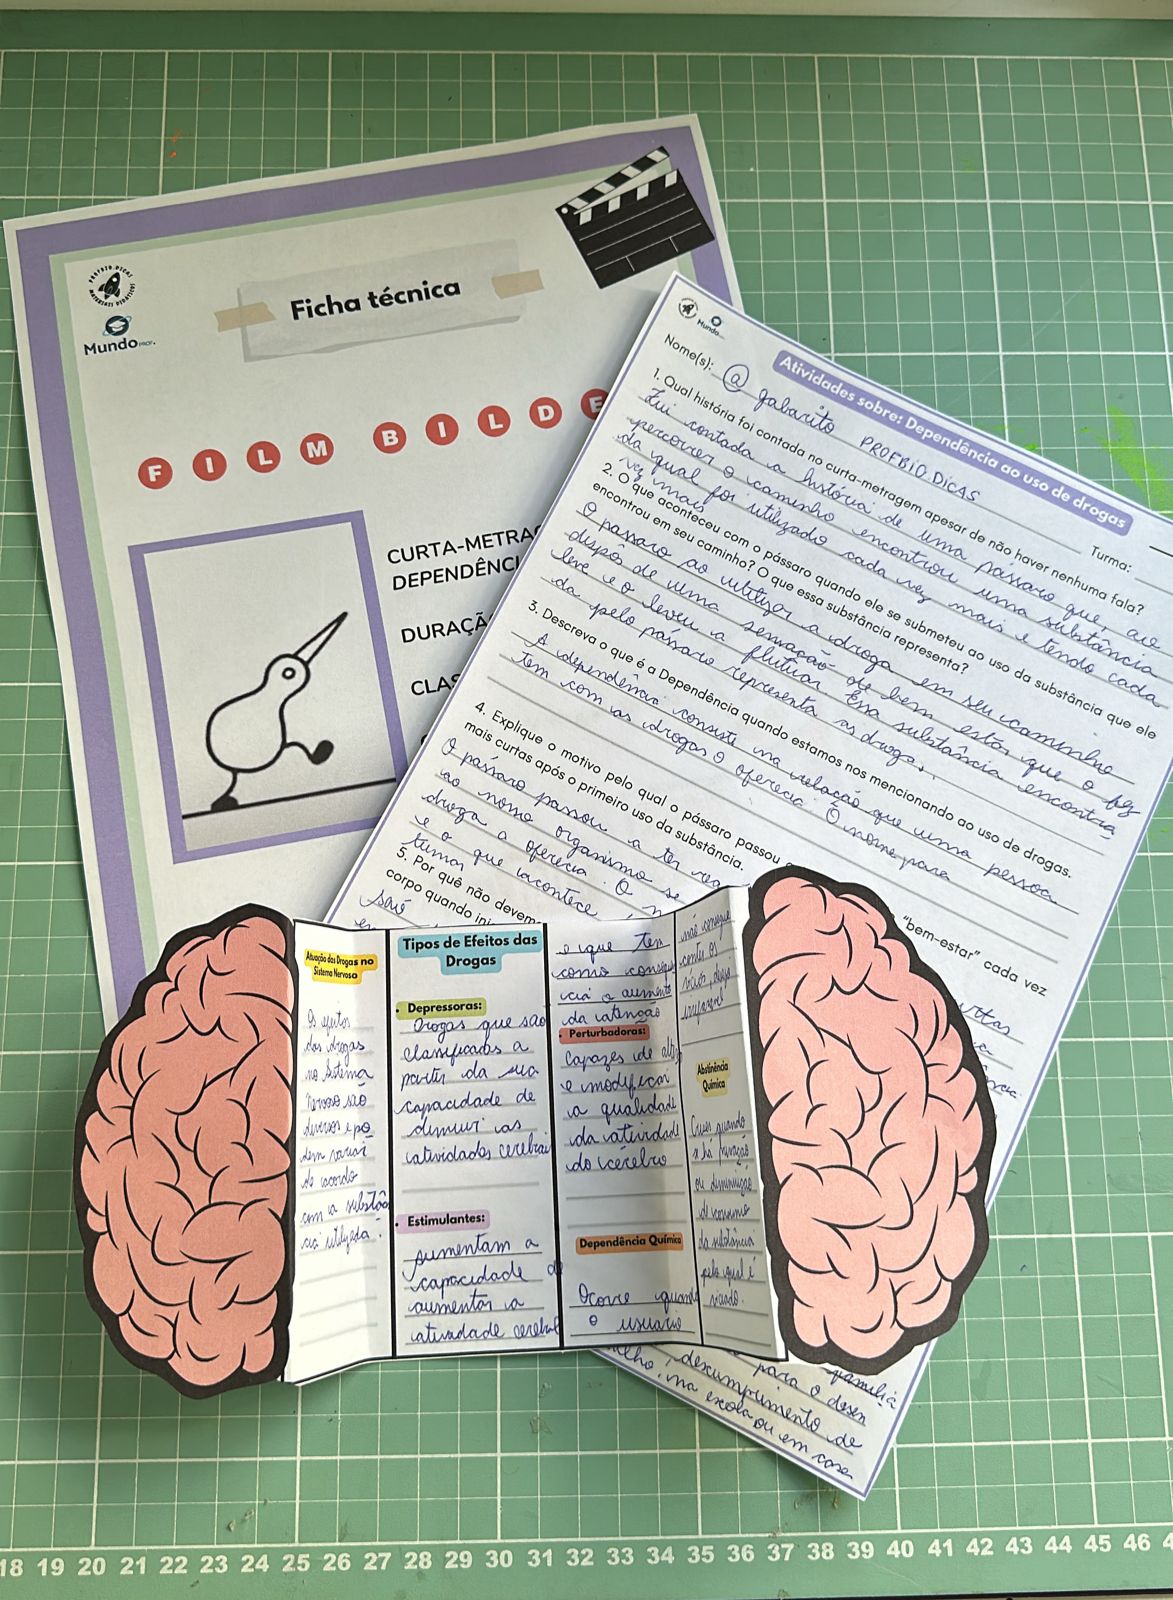 PROFBIO.DICAS
MATERIAIS DIDÁTICOS
Mundo PROF.
Ficha técnica
FILM BILDE
CURTA-METRA
DEPENDÊNCI
DURAÇÃ
CLAS
Mundo
Atividades sobre: Dependência ao uso de drogas
Nome(s): @ gabarito PROFBIO.DICAS
Turma:
1. Qual história foi contada no curta-metragem apesar de não haver nenhuma fala?
Fui contada a história de uma pássaro que, ao
percorrer o caminho encontrou uma substância
da qual foi utilizado cada vez mais e tendo cada
vez mais
2. O que aconteceu com o pássaro quando ele se submeteu ao uso da substância que ele
encontrou em seu caminho? O que essa substância representa?
O pássaro ao utilizar a droga em seu caminho
dispôs de uma sensação de bem estar, que o fez
leve e o levou a flutuar. Essa substância encontra
da pelo pássaro representa as drogas.
3. Descreva o que é a Dependência quando estamos nos mencionando ao uso de drogas.
A dependência consiste na relação que uma pessoa
tem com as drogas
4. Explique o motivo pelo qual o pássaro passou
"bem-estar" cada vez
mais curtas após o primeiro uso da substância.
O pássaro passou a ter
ao nosso organismo se
droga a oferecia. O
e o que acontece
5. Por quê não devem
corpo quando ini
Atuação das Drogas no
Sistema Nervoso
Os efeitos
das drogas
no Sistema
Nervoso são
diversos e po
dem variar
de acordo
com a substân
cia utilizada.
Tipos de Efeitos das
Drogas
Depressoras:
Drogas que são
classificadas a
partir da sua
capacidade de
diminuir as
atividades cerebrai
Estimulantes:
Aumentam a
capacidade de
aumentar a
atividade cerebral
e que tem
como consequ
cia o aumento
da atenção
Perturbadoras:
Capazes de
e modificar
a qualidade
da atividade
do cérebro
Dependência Química
Ocorre quando
o usuário
não consegue
conter os
vícios,
Abstinência
Química
quando
há privação
ou diminuição
de consumo
da substância
pela qual é
viciado.
para o desen
descumprimento de
na escola ou em casa
18 19 20 21 22 23 24 25 26 27 28 29 30 31 32 33 34 35 36 37 38 39 40 41 42 43 44 45 46 4